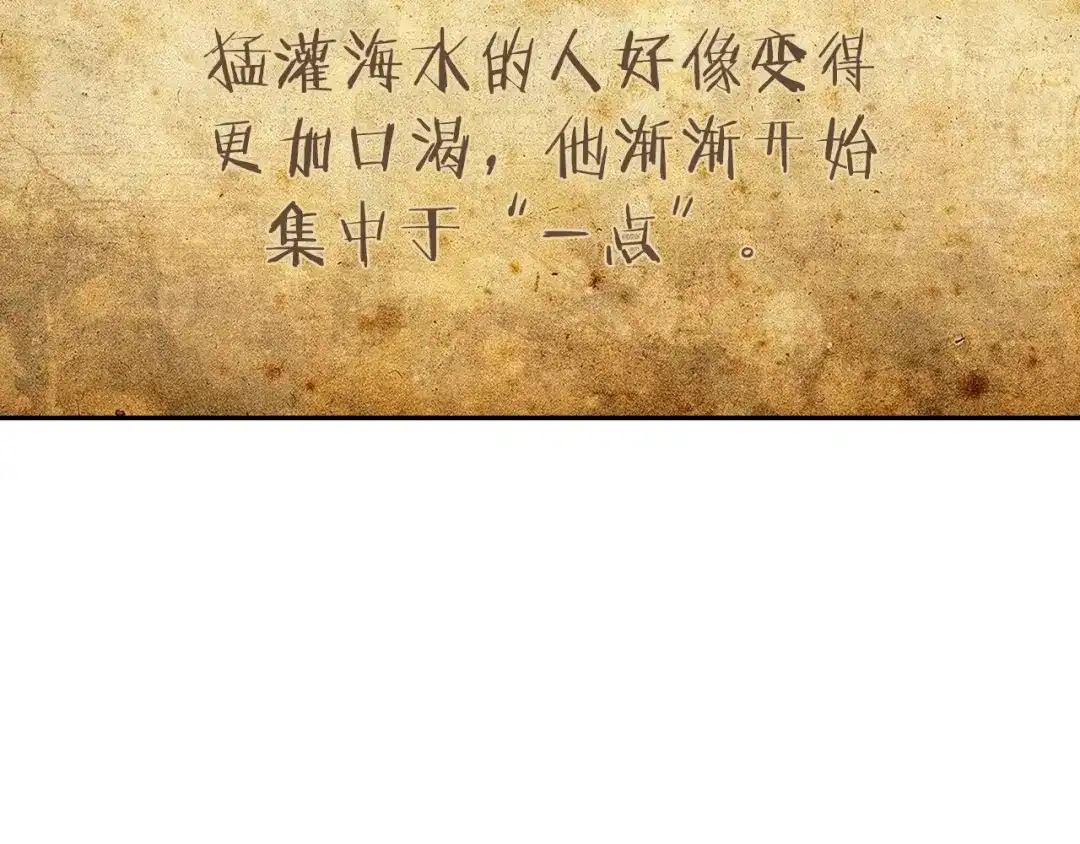 猛灌海水的人好像变得
更加口渴，他渐渐开始
集中于“一点”。